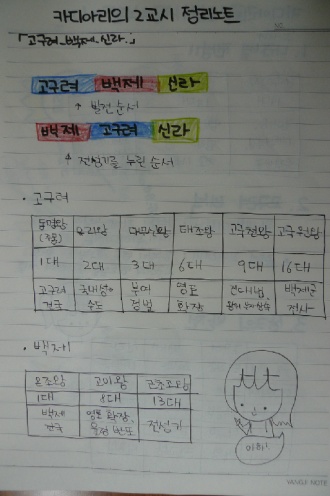 카디아리의 2교시 정리노트
「고구려-백제-신라」
고구려 백제 신라
↑ 발견 순서
백제 고구려 신라
↑ 전성기를 누린 순서
· 고구려
동명왕 (주몽) 유리왕 대무신왕 태조왕 고국천왕 고국원왕
1대 2대 3대 6대 9대 16대
고구려 국내성 부여 영토 진대법, 백제군
건국 수도 정벌 확장 전사
· 백제
온조왕 고이왕 근초고왕
1대 8대 13대
백제 영토 확장, 전성기
건국 율령 반포
아하!
YANGJI NOTE